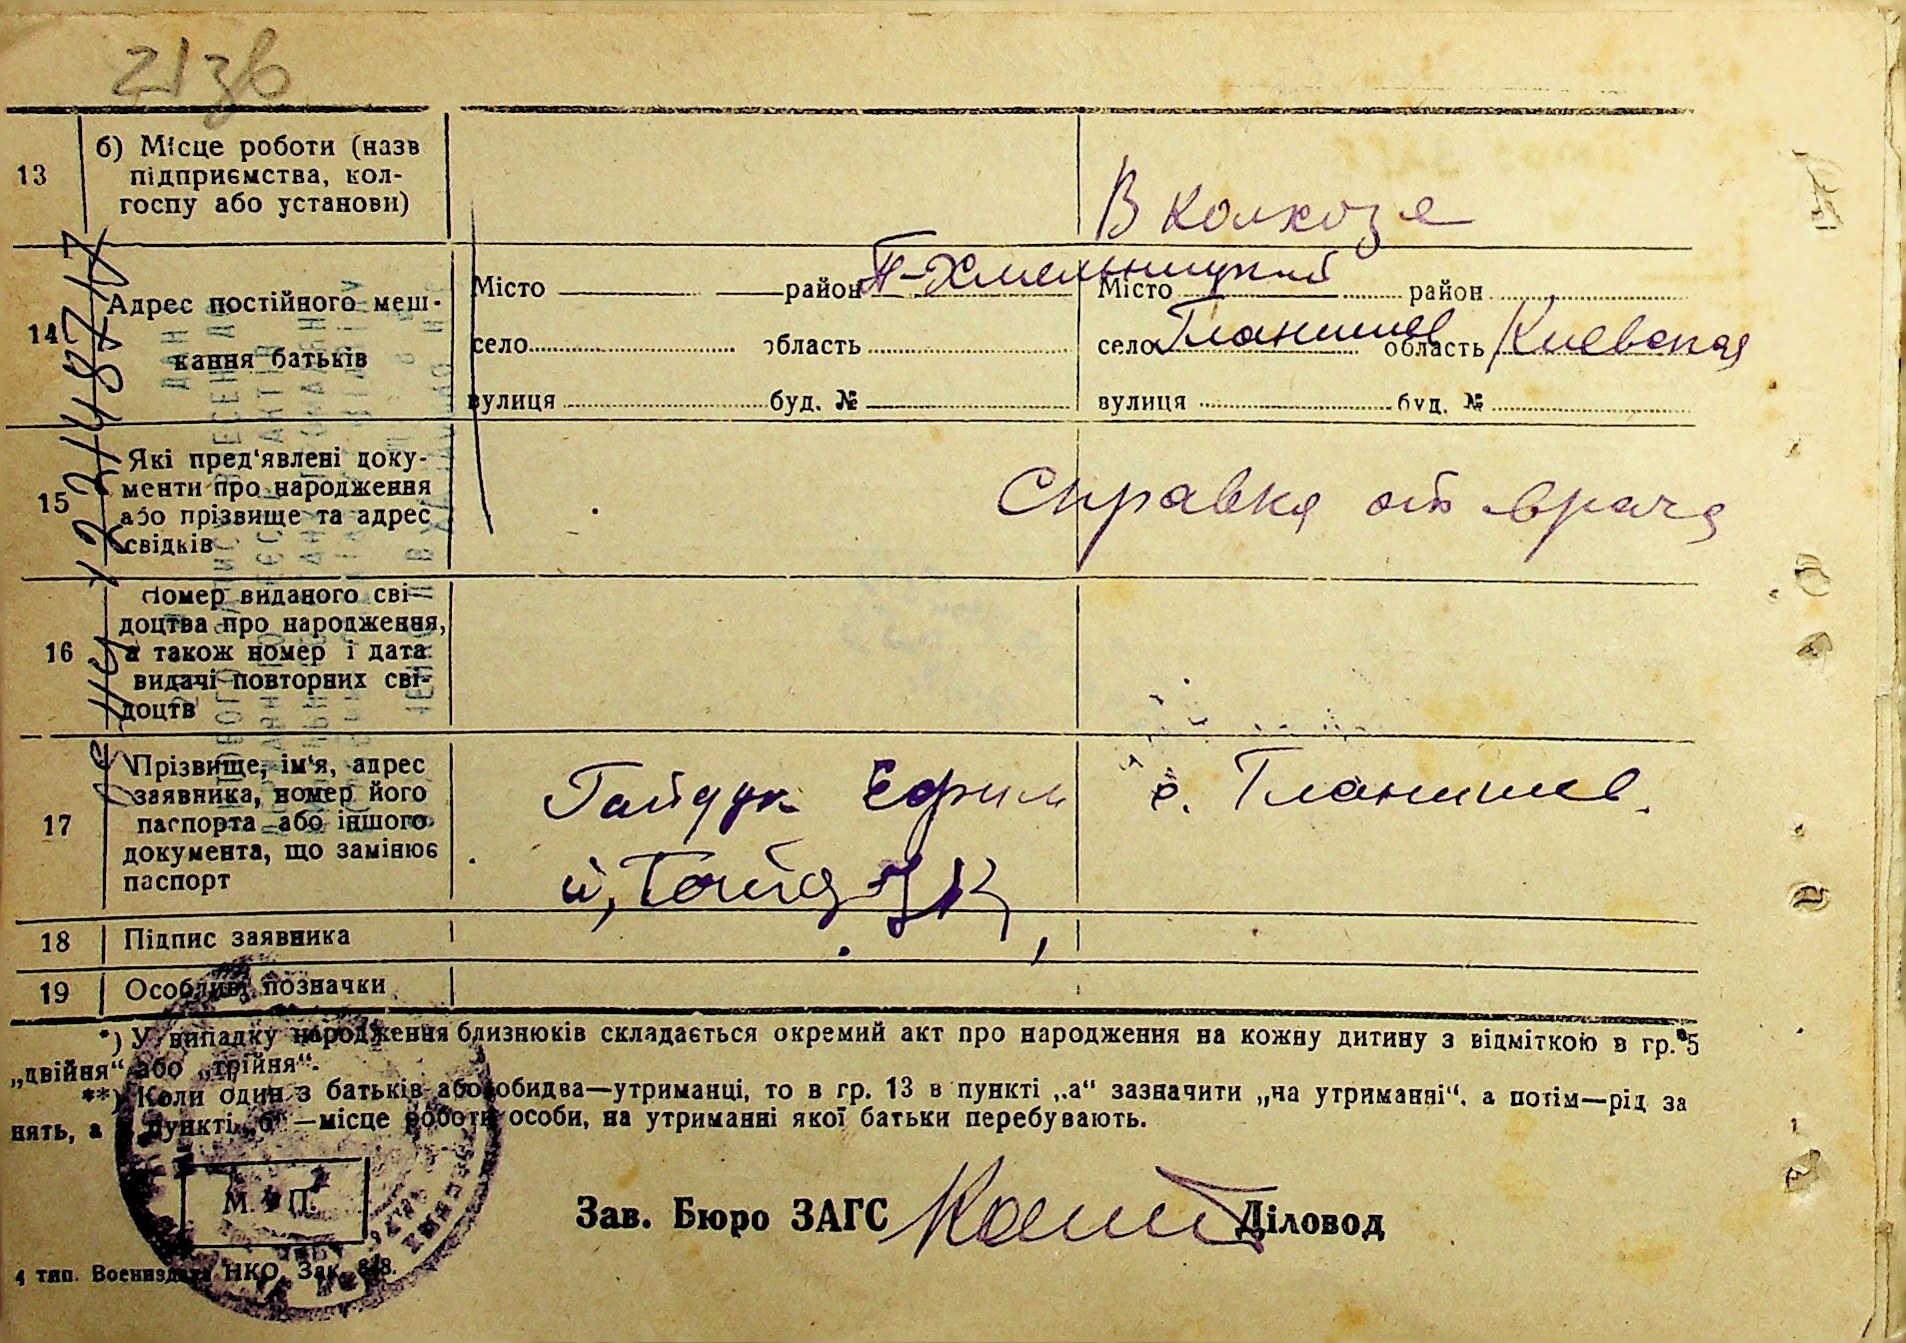 21зв
13
б) Місце роботи (назв
підприємства, кол-
госпу або установи)
В колхозе
14
Адрес постійного меш-
кання батьків
Місто район П-Хмельницкий
село область
вулиця буд. №
Місто район
село Планишев область Киевская
вулиця буд. №
15
Які пред'явлені доку-
менти про народження
або прізвище та адрес
свідків
Справка от врача
16
Номер виданого сві-
доцтва про народження,
а також номер і дата
видачі повторних сві-
доцтв
17
Прізвище, ім'я, адрес
заявника, номер його
паспорта або іншого
документа, що замінює
паспорт
Гайдук Ефим с. Планишев.
Гайдук
18 Підпис заявника
19 Особливі позначки
*) У випадку народження близнюків складається окремий акт про народження на кожну дитину з відміткою в гр. 5
„двійня“ або „трійня“.
**) Коли один з батьків або обидва—утриманці, то в гр. 13 в пункті „а“ зазначити „на утриманні“, а потім—рід за
нять, а в пункті „б“—місце роботи особи, на утриманні якої батьки перебувають.
М. П.
Зав. Бюро ЗАГС Діловод
4 тип. Воениздата НКО. Зак.